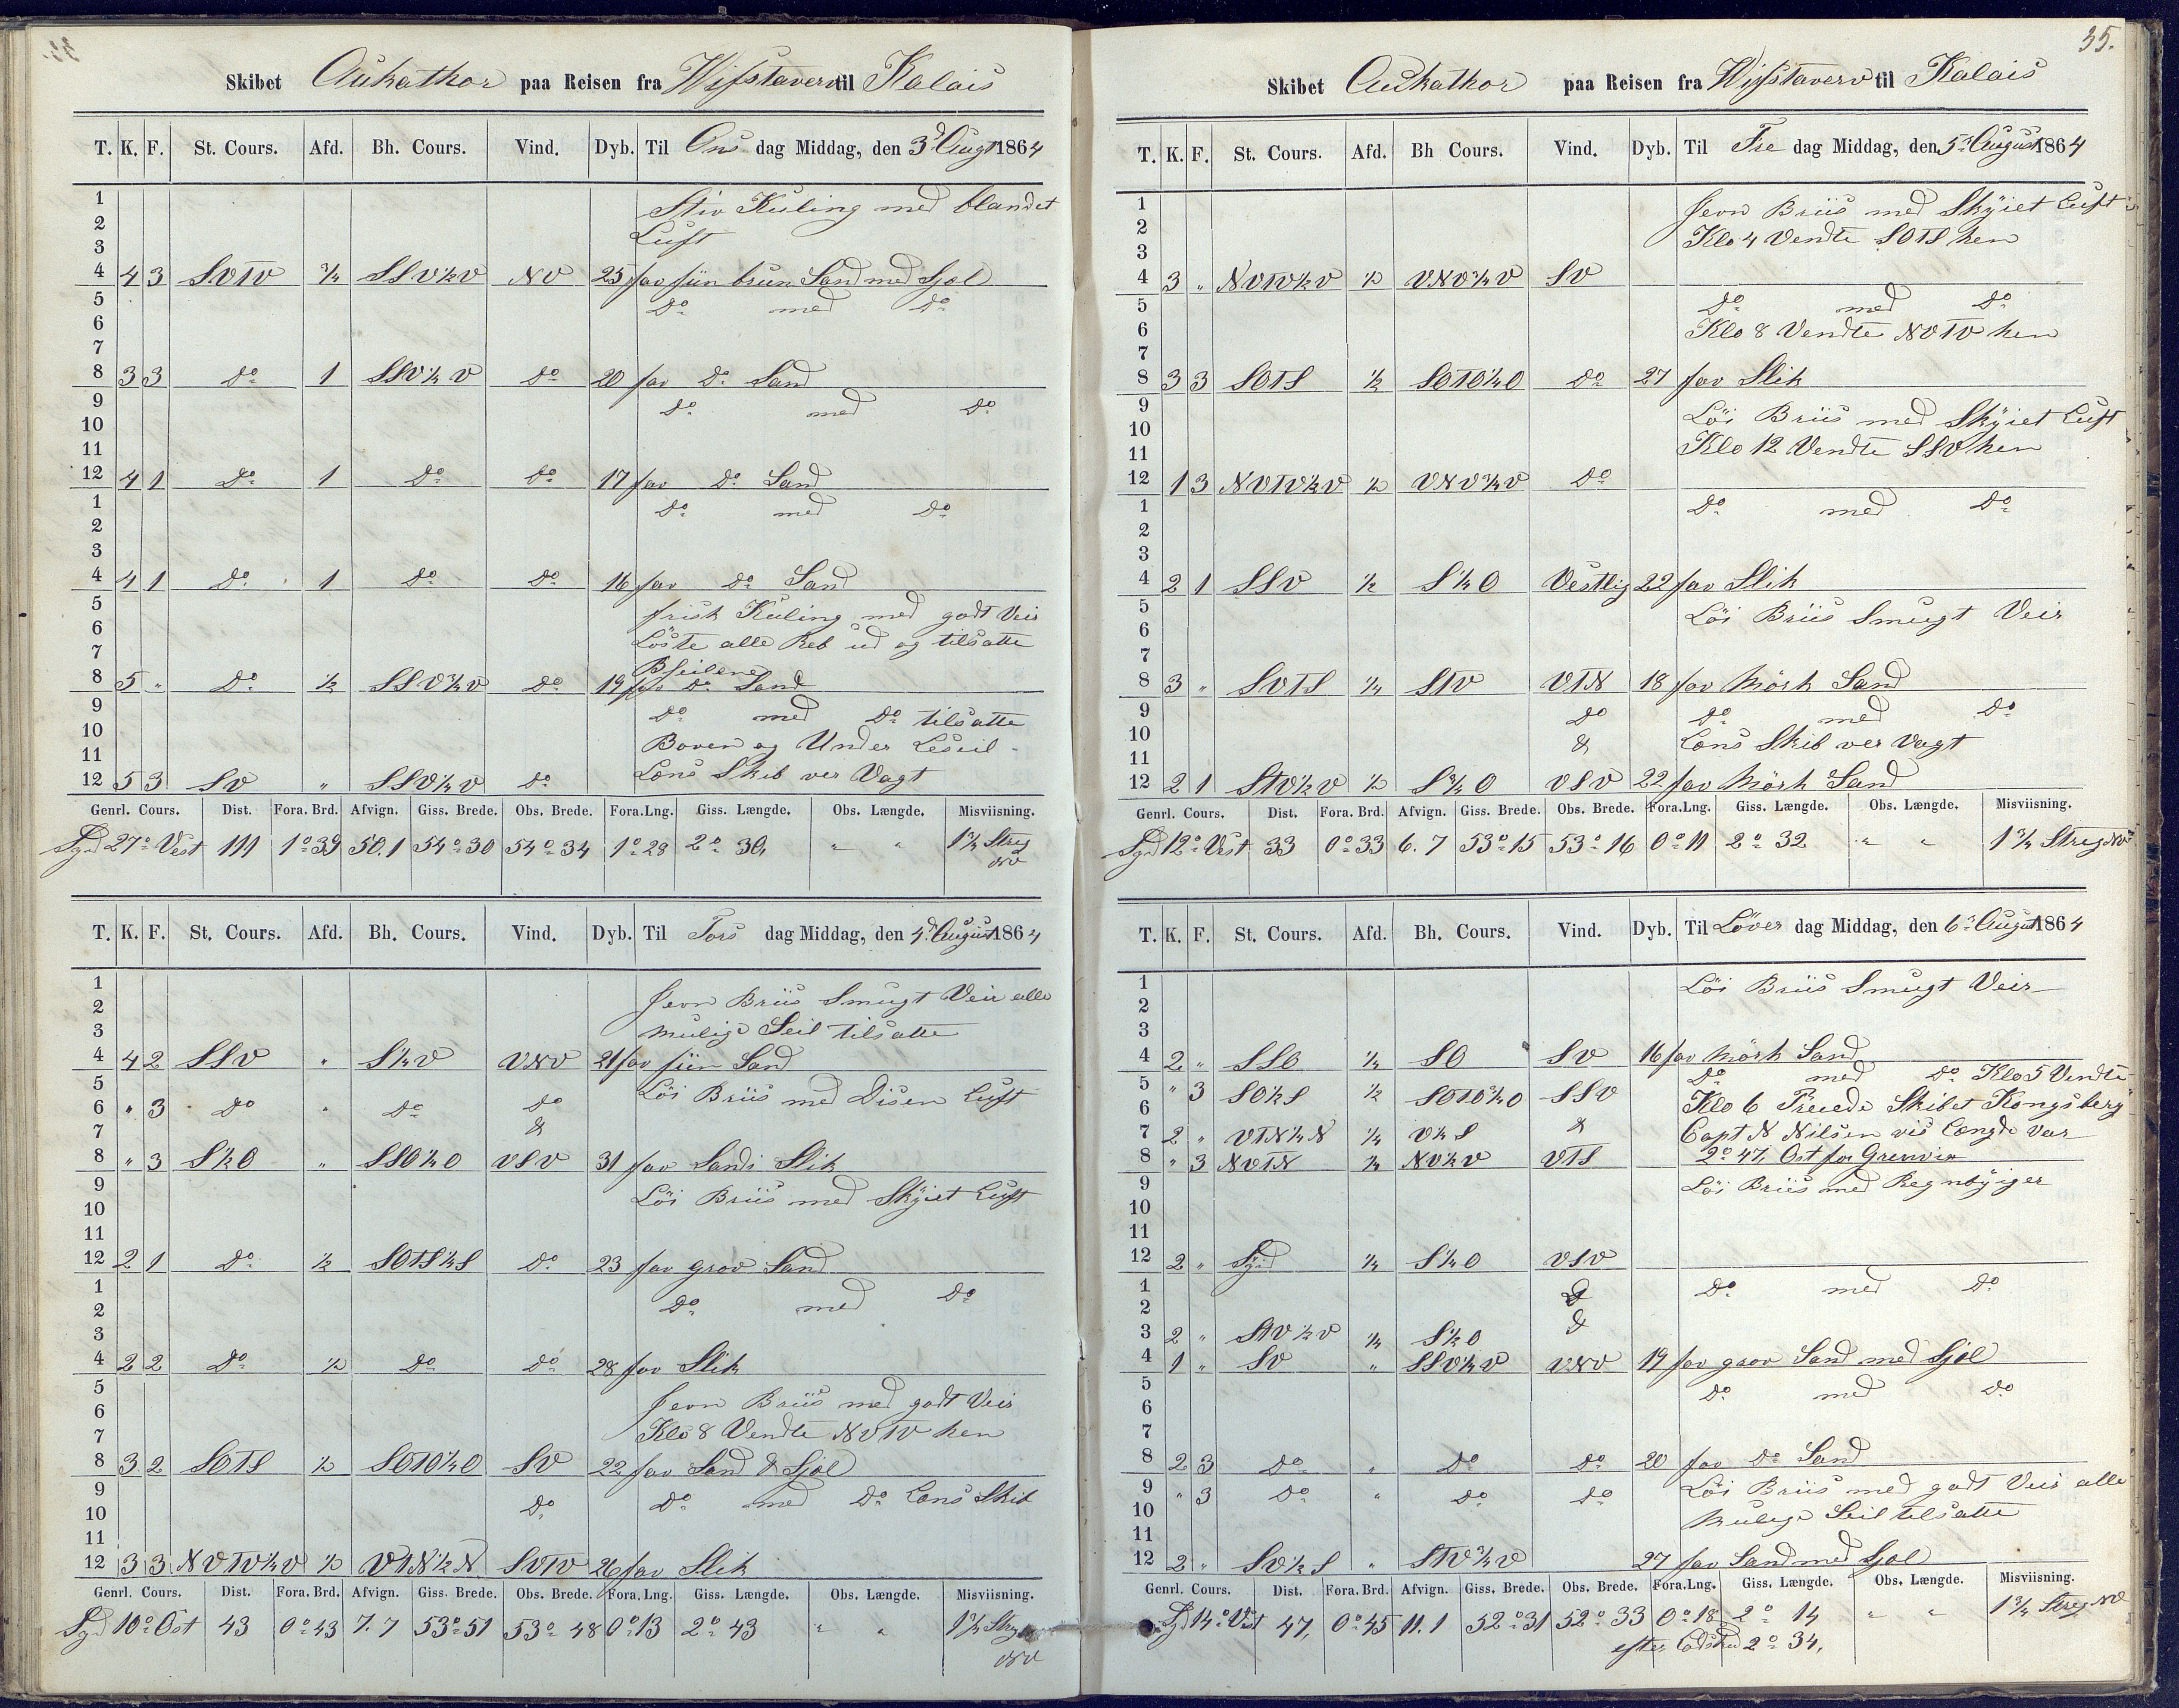 Skibet Aukathor paa Reisen fra Wifstaverv til Kalais
T. K. F. St. Cours. Afd. Bh. Cours. Vind. Dyb. Til Ons dag Middag, den 3d Augt 1864
1 Stiv Kuling med blandet
2 Luft
3
4 4 3 SVTV ¾ SSV½V NV 25 fav fiin brun Sand med Sjæl
5 Do med Do
6
7
8 3 3 Do 1 SSV¼V Do 20 fav Do Sand
9 Do med Do
10
11
12 4 1 Do 1 Do Do 17 fav Do Sand
1 Do med Do
2
3
4 4 1 Do 1 Do Do 16 fav Do Sand
5 frisk Kuling med godt Veir
6 Löste alle Reb ud og tilsatte
7 Bseilene
8 5 " Do ½ SSV¾V Do 19 fav Do Sand
9 Do med Do tilsatte
10 Boven og Under Leseil
11 Lens Skib ver Vagt
12 5 3 SV " SSV¼V Do
Genrl. Cours. Dist. Fora. Brd. Afvign. Giss. Brede. Obs. Brede. Fora. Lng. Giss. Længde. Obs. Længde. Misviisning.
Syd 27° Vest 111 1°39 50.1 54°30 54°34 1°28 2°30, " " 1¾ Streg
NV
T. K. F. St. Cours. Afd. Bh. Cours. Vind. Dyb. Til Tors dag Middag, den 4d August 1864
1 Jevn Briis Smugt Veir alle
2 mulige Seil tilsatte
3
4 4 2 SSV " S¼V VNV 21 fav fiin Sand
5 Löi Briis med Disen Luft
6 " 3 Do " Do Do
7 &
8 " 3 S½O " SSO½O VSV 31 fav Sandi Slik
9 Löi Briis med Skÿiet Luft
10
11
12 2 1 Do ½ SOTS¼S Do 23 fav grov Sand
1 Do med Do
2
3
4 2 2 Do ½ Do Do 28 fav Slik
5 Jevn Briis med godt Veir
6 Klo 8 Vendte NVTV hen
7
8 3 2 SOTS ½ SOTO¼O SV 22 fav Sand & Sjæl
9 Do Do med Do Lens Skib
10
11
12 3 3 NVTV¼V ½ VTN½N SVTV 26 fav Slik
Genrl. Cours. Dist. Fora. Brd. Afvign. Giss. Brede. Obs. Brede. Fora. Lng. Giss. Længde. Obs. Længde. Misviisning.
Syd 10° Ost 43 0°43 7.7 53°51 53°48 0°13 2°43 " " 1¾ Streg
NV
35.
Skibet Aukathor paa Reisen fra Wifstaverv til Kalais
T. K. F. St. Cours. Afd. Bh Cours. Vind. Dyb. Til Fre dag Middag, den 5d August 1864
1 Jevn Briis med Skÿiet Luft
2 Klo 4 Vendte SOTS hen
3
4 3 " NVTV½V ½ VNV¾V SV
5 Do med Do
6 Klo 8 Vendte NVTV hen
7
8 3 3 SOTS ½ SOTO¼O Do 27 fav Slik
9 Löi Briis med Skÿiet Luft
10 Klo 12 Vendte SSV hen
11
12 1 3 NVTV½V ½ VNV¾V Do
1 Do med Do
2
3
4 2 1 SSV ½ S¼O Vestlig 22 fav Slik
5 Löi Briis Smugt Veir
6
7
8 3 " SVTS ¼ STV VTN 18 fav Mörk Sand
9 Do Do med Do
10 & Lens Skib ver Vagt
11
12 2 1 STV½V ½ S¾O VSV 22 fav Mörk Sand
Genrl. Cours. Dist. Fora. Brd. Afvign. Giss. Brede. Obs. Brede. Fora. Lng. Giss. Længde. Obs. Længde. Misviisning.
Syd 12° Vest 33 0°33 6.7 53°15 53°16 0°11 2°32. " " 1¾ Streg NV
T. K. F. St. Cours. Afd. Bh. Cours. Vind. Dyb. Til Löver dag Middag, den 6d August 1864
1 Löi Briis Smugt Veir
2
3
4 2 " SSO ¼ SO SV 16 fav Mörk Sand
5 " 3 SO½S ½ SOTO¾O SSV Do med Do Klo 5 Vendte
6 Klo 6 Preiede Skibet Kongsberg
7 2 " VTN¼N ¼ V¼S & Capt N Nilsen vis Længde var
8 " 3 NVTN ¼ NV½V VTS 2°47, Ost for Grenvix
9 Löi Briis med Regnbÿiger
10
11
12 2 " Syd ¼ S¼O VSV
1 Do med Do
2 &
3 2 " STV½V ¼ S½O
4 1 " SV " SSV½V VNV 19 fav grov Sand med Sjæl
5 Do med Do
6
7
8 2 3 Do " Do Do 20 fav Do Sand
9 " 3 Do " Do Do Löi Briis med godt Veir alle
10 Mulige Seil tilsatte
11
12 2 " SV½S " STV¾V 27 fav Sand med Sjæl
Genrl. Cours. Dist. Fora. Brd. Afvign. Giss. Brede. Obs. Brede. Fora. Lng. Giss. Længde. Obs. Længde. Misviisning.
Syd 14° Vest 47, 0°45 11.1 52°31 52°33 0°18 2°14 " " 1¾ Streg NV
efter Lodskud 2°34,